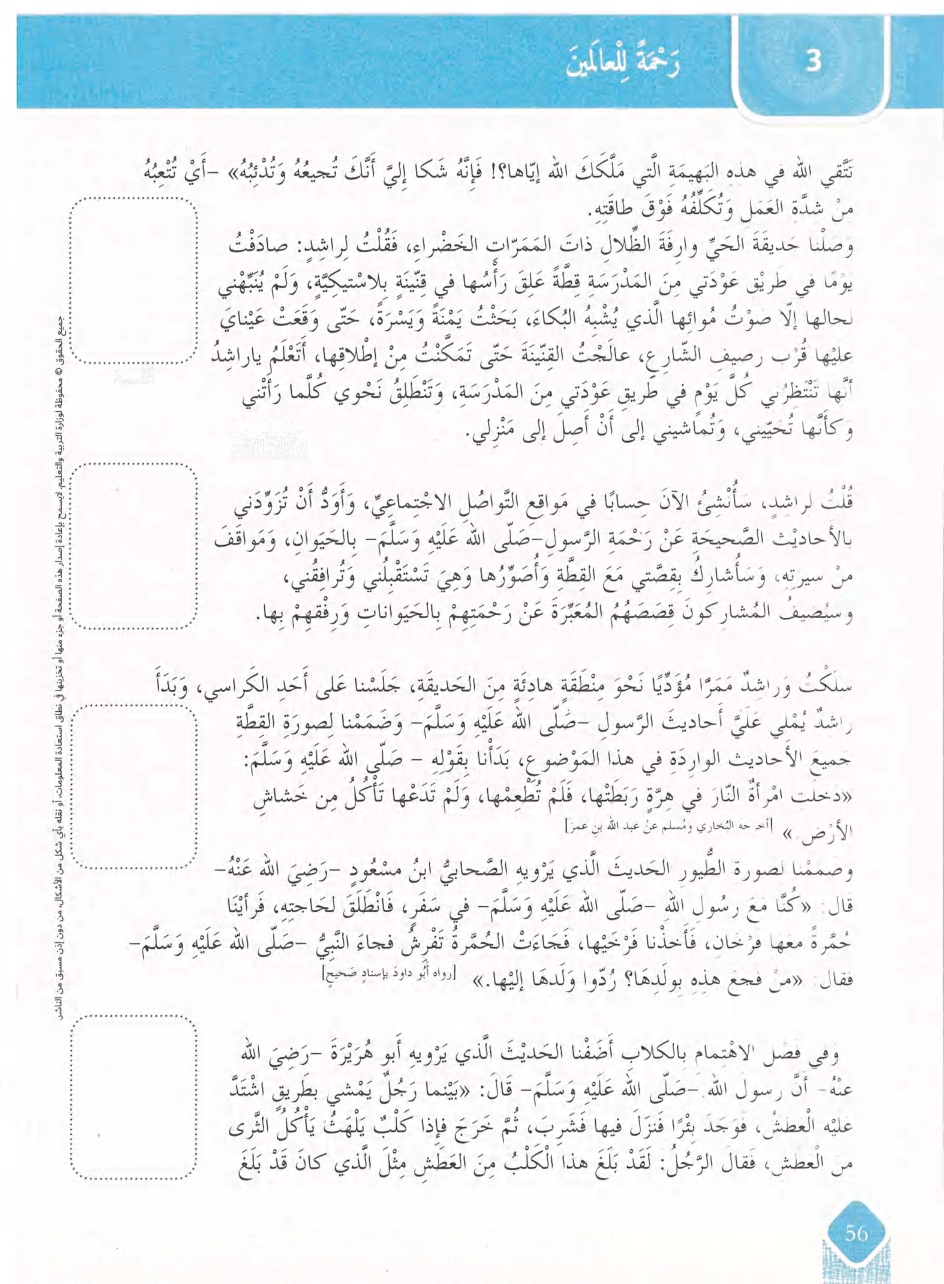 3
رَحْمَةً لِلْعالَمينَ
تَتَّقي الله في هذه البَهيمَةِ الَّتي مَلَّكَكَ الله إيّاها؟! فَإنَّهُ شَكا إليَّ أَنَّكَ تُجيعُهُ وَتُدْئِبُهُ» –أَيْ تُتْعِبُهُ
منْ شدَّةِ العَمَلِ وَتُكَلِّفُهُ فَوْقَ طاقَتِهِ.
وَصَلْنا حَديقَةَ الحَيِّ وارِفَةَ الظِّلالِ ذاتَ المَمَرّاتِ الخَضْراءِ، فَقُلْتُ لِراشِدٍ: صادَفْتُ
يَوْمًا في طَريْقِ عَوْدَتي مِنَ المَدْرَسَةِ قِطَّةً عَلِقَ رَأْسُها في قِنّينَةٍ بِلاسْتيكيَّةٍ، وَلَمْ يُنَبِّهْني
لحالها إلّا صوْتُ مُوائِها الَّذي يُشْبِهُ البُكاءَ، بَحَثْتُ يَمْنَةً وَيَسْرَةً، حَتّى وَقَعَتْ عَيْنايَ
عليْها قُرْب رصيفِ الشّارِعِ، عالَجْتُ القِنّينَةَ حَتّى تَمَكَّنْتُ مِنْ إطْلاقِها، أَتَعْلَمُ ياراشِدُ
أنَّها تَنْتَظرُني كُلَّ يَوْمٍ في طَريقِ عَوْدَتي مِنَ المَدْرَسَةِ، وَتَنْطَلِقُ نَحْوي كُلَّما رَأَتْني
وكأَنَّها تُحَيّيني، وَتُماشيني إلى أَنْ أَصِلَ إلى مَنْزِلي.
قُلْتُ لراشِدٍ، سَأُنْشِئُ الآنَ حِسابًا في مَواقِعِ التَّواصُلِ الاجْتِماعِيِّ، وَأَوَدُّ أَنْ تُزَوِّدَني
بالأحاديْث الصَّحيحَةِ عَنْ رَحْمَةِ الرَّسولِ–صَلّى اللهُ عَلَيْهِ وَسَلَّمَ– بالحَيَوانِ، وَمَواقفَ
منْ سيرتِه، وَسَأُشارِكُ بِقِصَّتي مَعَ القِطَّةِ وَأُصَوِّرُها وَهيَ تَسْتَقْبِلُني وَتُرافِقُني،
وسيُضيفُ المُشاركونَ قِصَصَهُمُ المُعَبِّرَةَ عَنْ رَحْمَتِهِمْ بالحَيَواناتِ وَرِفْقِهِمْ بِها.
سلَكْتُ وَراشدٌ مَمَرًّا مُؤَدِّيًا نَحْوَ مِنْطَقَةٍ هادِئَةٍ مِنَ الحَديقَةِ، جَلَسْنا عَلى أَحَدِ الكَراسي، وَبَدَأَ
راشدٌ يُمْلي عَلَيَّ أَحاديثَ الرَّسولِ –صَلّى اللهُ عَلَيْهِ وَسَلَّمَ– وَضَمَمْنا لِصورَةِ القِطَّة
جميعَ الأحاديث الوارِدَةِ في هذا المَوْضوعِ، بَدَأْنا بِقَوْلِهِ – صَلّى اللهُ عَلَيْهِ وَسَلَّمَ:
«دخلَت امْرأةٌ النّارَ في هِرَّةٍ رَبَطَتْها، فَلَمْ تُطْعِمْها، وَلَمْ تَدَعْها تَأْكُلُ مِن خَشاشِ
الأرْضِ» [أخرجه البُخاري ومُسلم عنْ عبد الله بنِ عمرَ]
وضممْنا لصورة الطُّيورِ الحَديثَ الَّذي يَرْويهِ الصَّحابيُّ ابنُ مسْعُودٍ –رَضِيَ اللهُ عَنْهُ–
قال: «كُنَّا مَعَ رسُولِ اللهِ –صَلّى اللهُ عَلَيْهِ وَسَلَّمَ– في سَفَرٍ، فَانْطَلَقَ لحَاجتِهِ، فَرأيْنَا
حُمَّرةً معَها فرْخان، فَأخذْنا فَرْخَيْها، فَجَاءَتْ الحُمَّرةُ تَفْرِشُ فجاءَ النَّبيُّ –صَلّى اللهُ عَلَيْهِ وَسَلَّمَ–
فقال: «منْ فجعَ هذِهِ بولَدِهَا؟ رُدّوا وَلَدها إليْها.» [رواه أَبُو داودَ بإسنادٍ صَحيح]
وفي فَضْل الاهْتمام بالكلابِ أَضَفْنا الحَديْثَ الَّذي يَرْويهِ أَبو هُرَيْرَةَ –رَضِيَ الله
عنْهُ– أنَّ رسول الله –صَلّى اللهُ عَلَيْهِ وَسَلَّمَ– قَالَ: «بَيْنما رَجُلٌ يَمْشي بطَريقٍ اشْتَدَّ
عليْه الْعطشُ، فوَجَدَ بِئْرًا فَنزَلَ فيها فَشَرِبَ، ثُمَّ خَرَجَ فإذا كَلْبٌ يَلْهَثُ يَأْكُلُ الثَّرى
من الْعطش، فَقالَ الرَّجُلُ: لَقَدْ بَلَغَ هذا الْكَلْبُ مِنَ العَطَشِ مِثْلَ الَّذي كانَ قَدْ بَلَغَ
جميع الحقوق © محفوظة لوزارة التربية والتعليم. لايسمح بإعادة إصدار هذه الصفحة أو جزء منها أو تخزينها في نطاق استعادة المعلومات، أو نقله بأي شكل من الأشكال، من دون إذن مسبق من الناشر.
56